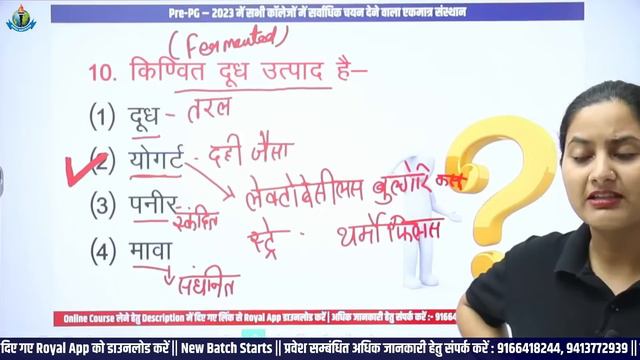 Pre-PG – 2023 में सभी कॉलेजों में सर्वाधिक चयन देने वाला एकमात्र संस्थान
(Fermented)
10. किण्वित दूध उत्पाद है–
(1) दूध - तरल
(2) योगर्ट - दही जैसा
लेक्टोबेसीलस बुल्गारिकस
(3) पनीर स्कंदित
स्ट्रे. थर्मोफिलस
(4) मावा
संघनित
Online Course लेने हेतु Description में दिए गए लिंक से Royal App डाउनलोड करें | अधिक जानकारी हेतु संपर्क करें :- 9166
दिए गए Royal App को डाउनलोड करें || New Batch Starts || प्रवेश सम्बंधित अधिक जानकारी हेतु संपर्क करें : 9166418244, 9413772939 ||